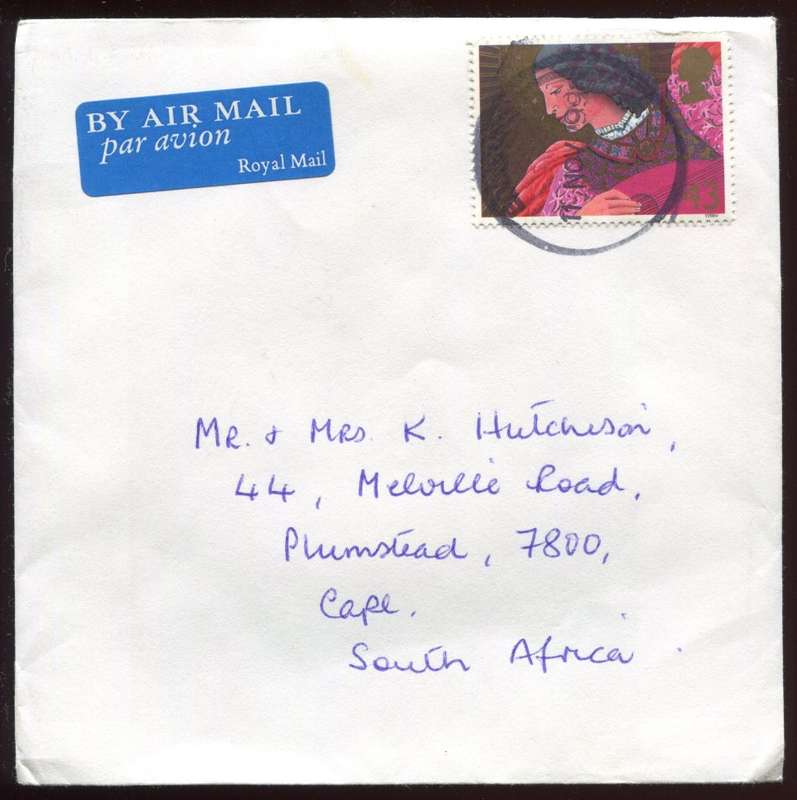 BY AIR MAIL
par avion
Royal Mail
43
11 NO
Mr. & Mrs. K. Hutcheson,
44, Melville Road,
Plumstead, 7800,
Cape.
South Africa.